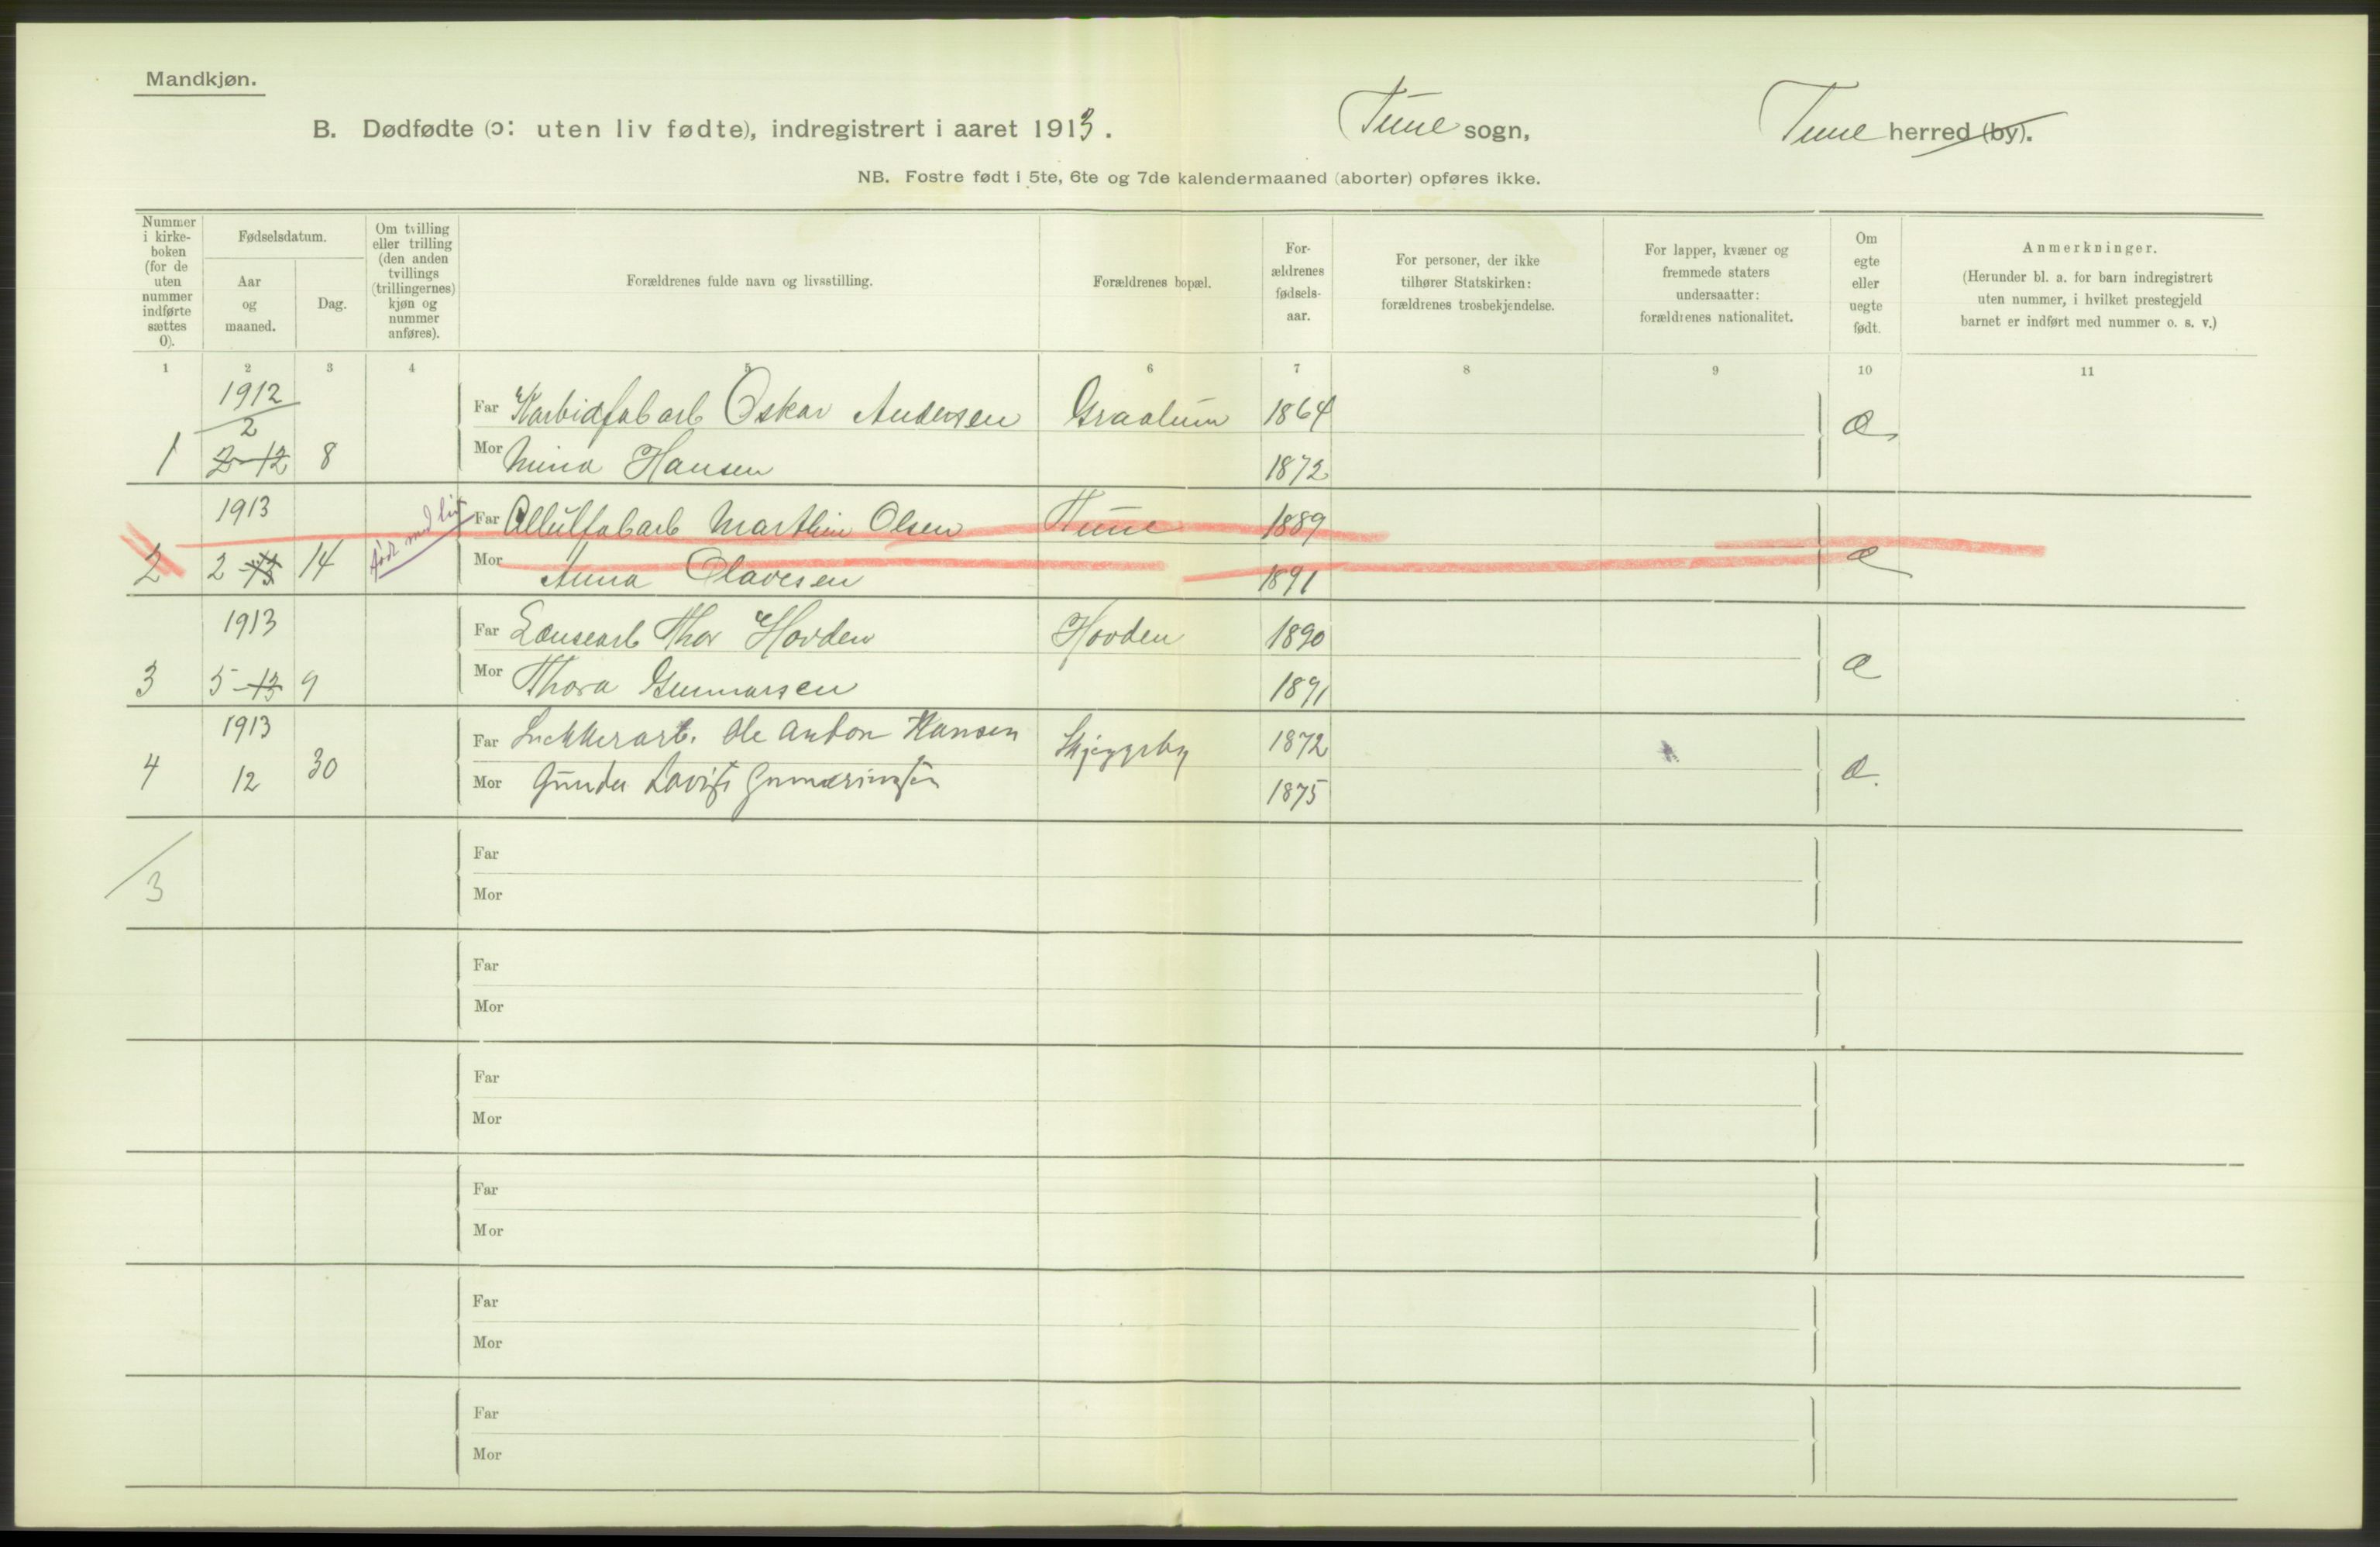 Mandkjøn.
B. Dødfødte (ɔ: uten liv fødte), indregistrert i aaret 1913.
Tune sogn,
Tune herred (by).
NB. Fostre født i 5te, 6te og 7de kalendermaaned (aborter) opføres ikke.
Nummer
i kirke-
boken
(for de
uten
nummer
indførte
sættes
0).
Fødselsdatum.
Aar
og
maaned.
Dag.
Om tvilling
eller trilling
(den anden
tvillings
(trillingernes)
kjøn og
nummer
anføres).
Forældrenes fulde navn og livsstilling.
Forældrenes bopæl.
For-
ældrenes
fødsels-
aar.
For personer, der ikke
tilhører Statskirken:
forældrenes trosbekjendelse.
For lapper, kvæner og
fremmede staters
undersaatter:
forældrenes nationalitet.
Om
egte
eller
uegte
født.
Anmerkninger.
(Herunder bl. a. for barn indregistrert
uten nummer, i hvilket prestegjeld
barnet er indført med nummer o. s. v.)
1 2 3 4 5 6 7 8 9 10 11
1912
2
Far Karbidfabarb Oskar Andersen Graalum 1864
1 2-12 8 Mor Mina Hansen 1872
1913 født med liv Far Marthin Olsen Tune 1889
2 2-13 14 Mor Anna Olavesen 1891
1913 Far Lænsearb Thor Hovden Hovden 1890
3 5-13 9 Mor Thora Gunnarsen 1891
1913 Far Ole Anton Hansen 1872
4 12 30 Mor 1875
Far
3
Mor
Far
Mor
Far
Mor
Far
Mor
Far
Mor
Far
Mor